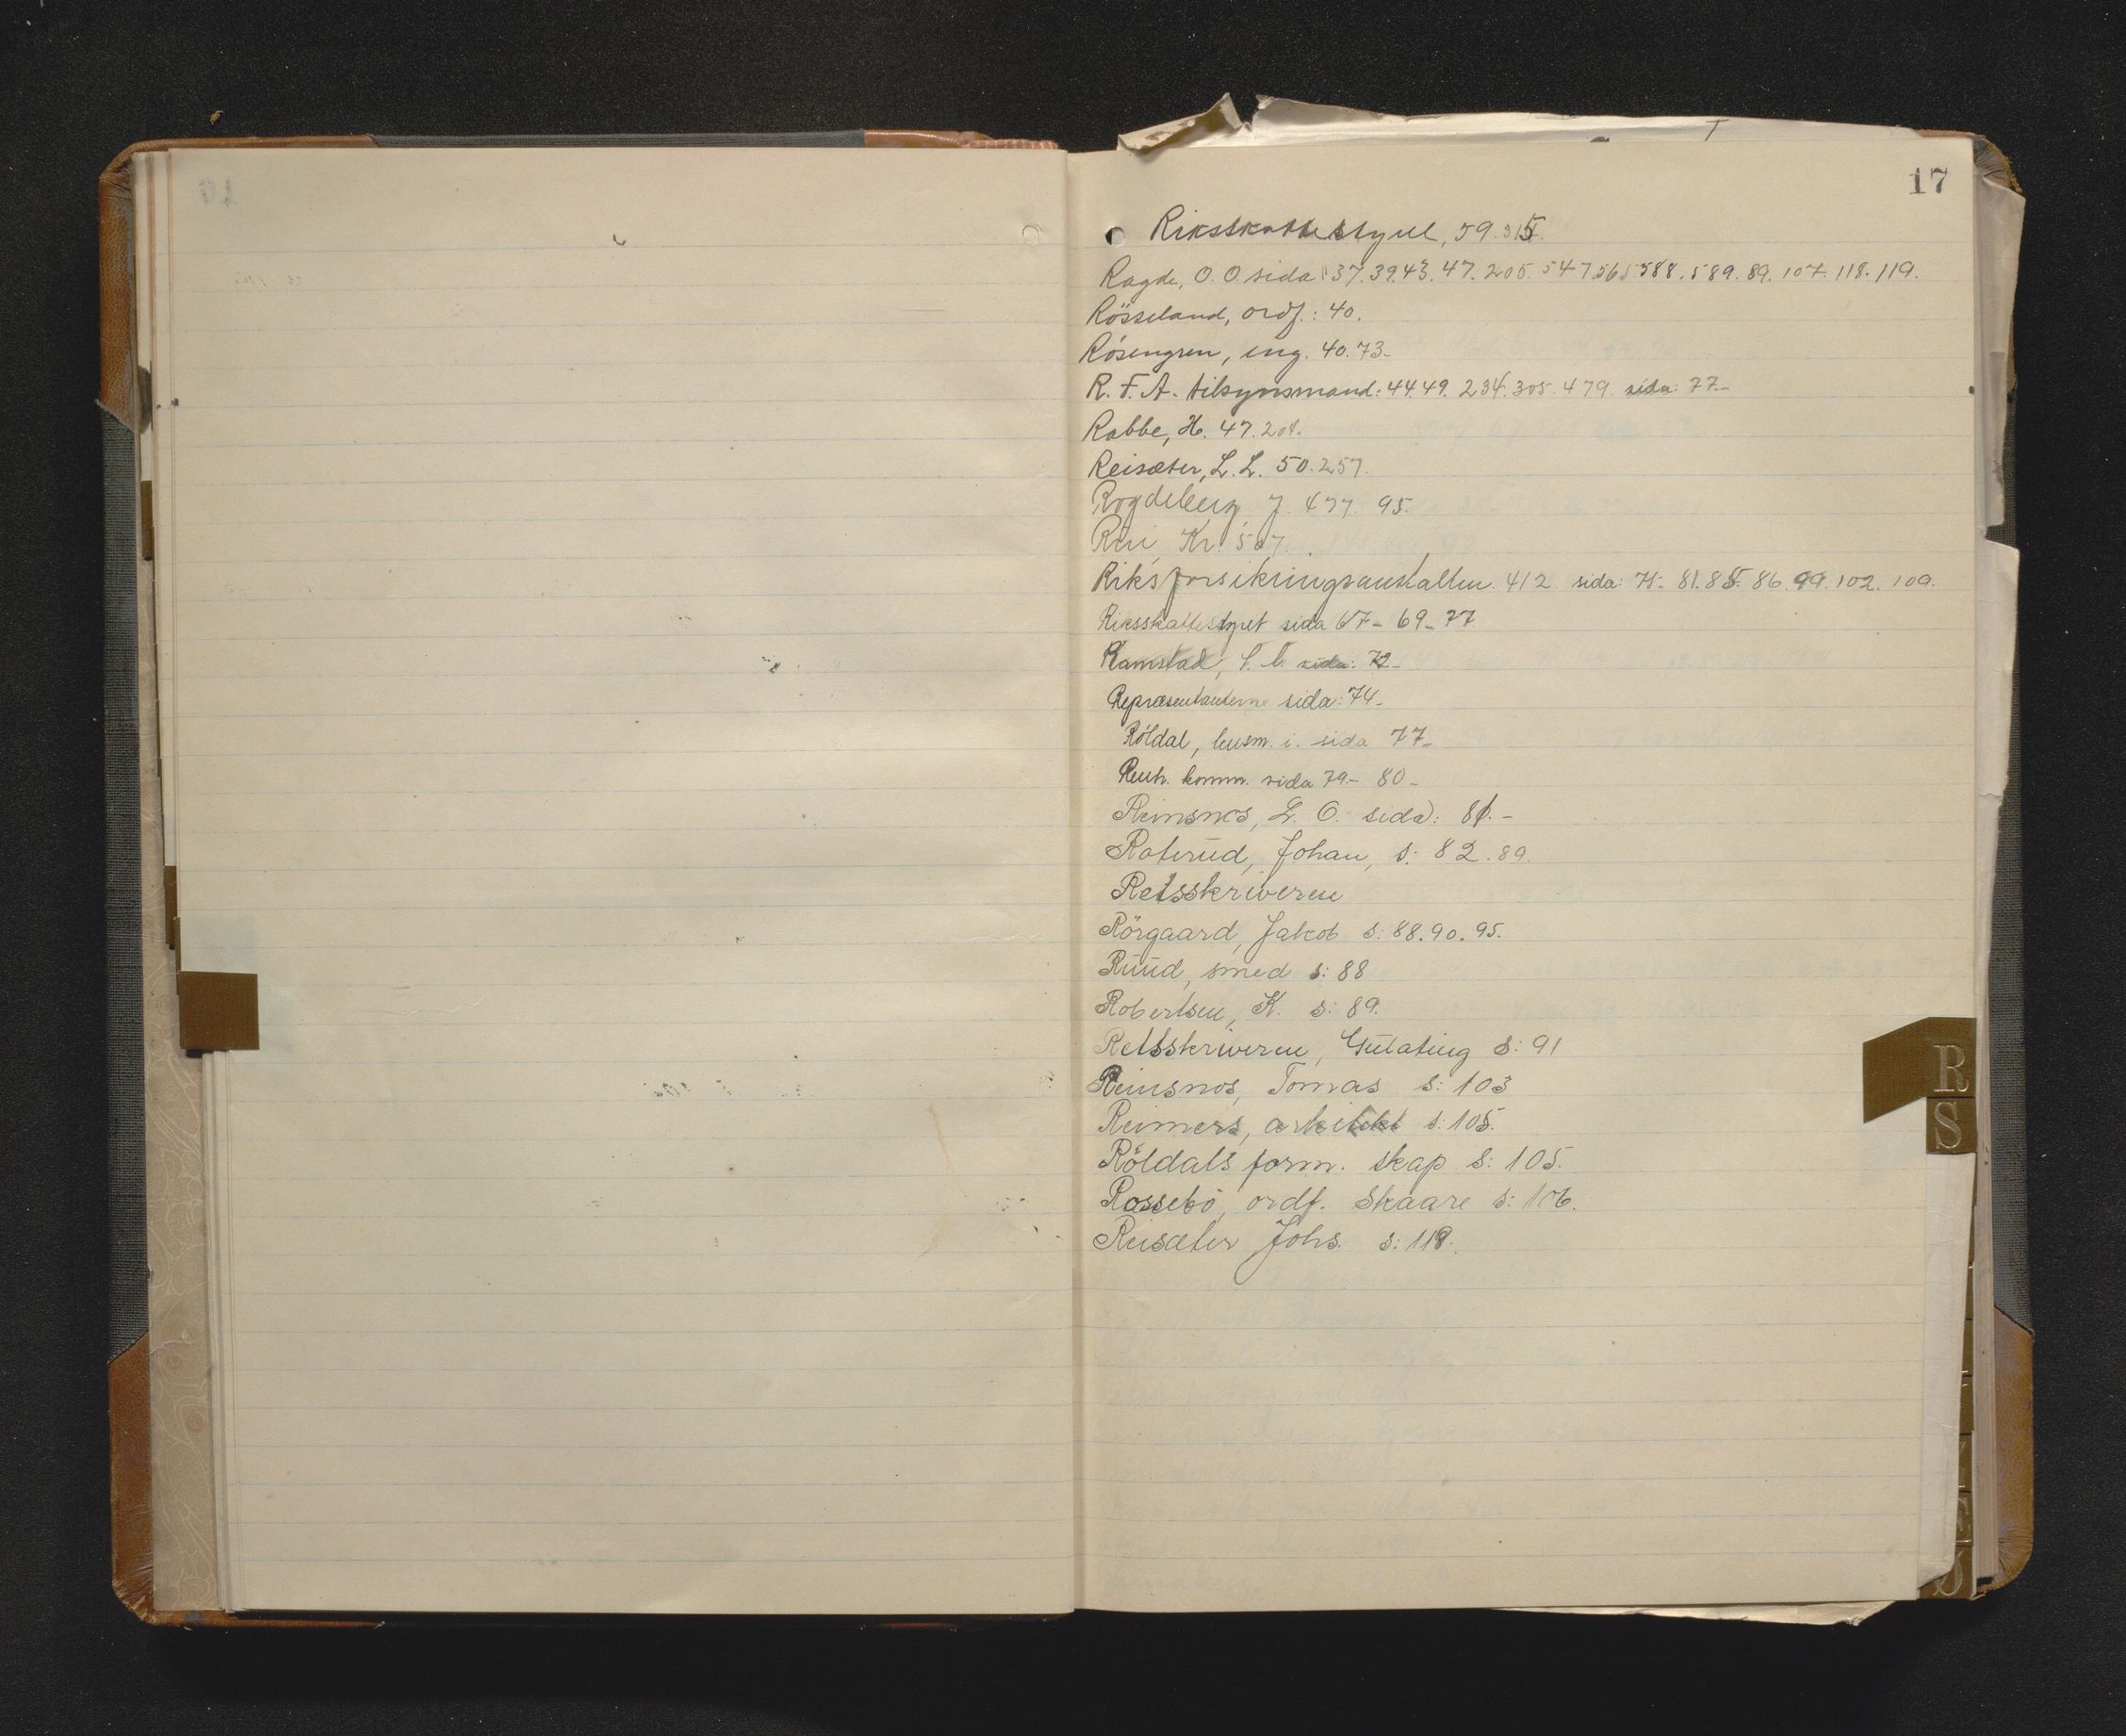 17
Riksskattestyret, 59. 315.
Ragde, O. O. sida 37. 39. 43. 47. 205. 547 565. 588. 589. 89. 107. 118. 119.
Rösseland, ordf.: 40.
Rósengren, ing. 40. 73-
R. F. A. tilsynsmand: 44. 49. 234. 305. 479. sida: 77-
Rabbe, H. 47. 204.
Reisæter, L. L. 50. 257.
Rogdeberg J. 477. 95.
Kr. 507.
Riksforsikringsanstalten. 412 sida: 75- 81. 85. 86. 99. 102. 109.
Riksskattestyret sida 67- 69- 77
Ramstad, sida: 72-
Repræsentanterne sida: 74-
Röldal, lensm. i. sida 77-
komm. sida 79- 80-
Reinsnos, L. O. sida: 81.-
Roterud, Johan, s: 82. 89.
Retsskriveren
Rörgaard, Jakob s: 88. 90. 95.
Ruud, smed s: 88
Robertsen, K. s: 89.
Retsskriveren, Gulating s: 91
Reinsnos, Tomas s: 103
Reimers, arkitekt s: 105.
Röldals form. skap s: 105.
Rossebö, ordf. Skaare s: 106.
Reisæter Johs. s: 118.
R
S